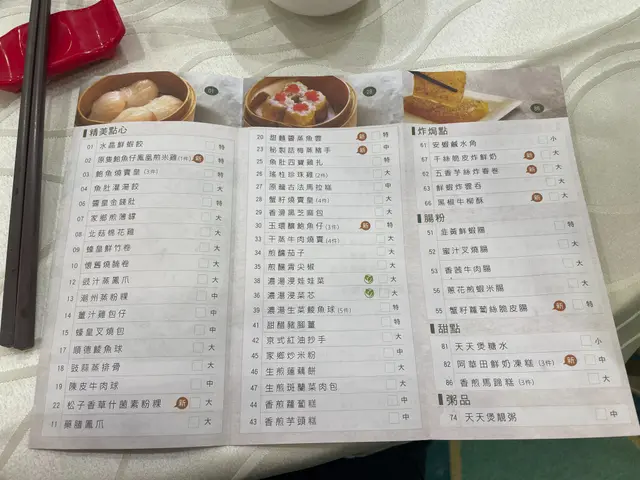 精美點心
01 水晶鮮蝦餃 特
02 原隻鮑魚仔鳳凰煎米雞(1件) 新 特
03 鮑魚燒賣皇(3件) 特
04 魚肚灌湯餃 大
05 鮮蝦腐皮卷 大
30 靈皇金錢肚 特
07 家鄉煎薄罉 大
08 北菇棉花雞 大
09 蠔皇鮮竹卷 大
10 懷舊燒腩卷 大
12 豉汁蒸鳳爪 大
13 潮州蒸粉粿 中
14 薑汁雞包仔 中
15 蠔皇叉燒包 中
17 順德鯪魚球 大
18 豉蒜蒸排骨 大
19 陳皮牛肉球 中
22 松子香草什菌素粉粿 新 大
11 藥膳鳳爪 大
20 甜麵醬蒸魚雲 新 特
23 秘製話梅蒸豬手 新 中
25 魚肚四寶雞扎 特
26 瑤柱珍珠雞(2件) 大
27 原籠古法馬拉糕 中
28 蟹籽燒賣皇(4件) 大
29 香滑黑芝麻包 大
30 五環釀鮑魚仔(3件) 新 特
33 干蒸牛肉燒賣(4件) 大
34 煎釀茄子 大
35 煎釀青尖椒 大
38 濃湯浸娃娃菜 大
36 濃湯浸菜芯 大
39 濃湯生菜鯪魚球(5件) 特
41 甜醋豬腳薑 特
42 京式紅油抄手 大
45 家鄉炒米粉 中
46 生煎蓮藕餅 大
47 生煎斑蘭菜肉包 大
44 香煎蘿蔔糕 中
43 香煎芋頭糕 大
炸焗點
61 安蝦鹹水角 小
67 千絲脆皮炸鮮奶 新 大
62 五香芋絲炸春卷 新 大
63 鮮蝦炸雲吞 大
68 黑椒牛柳酥 新 大
腸粉
51 韭黃鮮蝦腸 大
52 蜜汁叉燒腸 大
53 香茜牛肉腸 大
56 蔥花煎蝦米腸 大
55 蟹籽蘿蔔絲脆皮腸 新 特
甜點
81 天天煲糖水 小
82 阿華田鮮奶凍糕(3件) 新 中
86 香煎馬蹄糕(3件) 大
粥品
74 天天煲靚粥 中